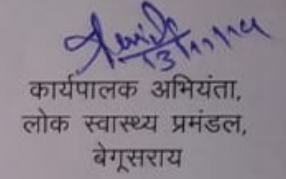 13/11/14
कार्यपालक अभियंता,
लोक स्वास्थ्य प्रमंडल,
बेगूसराय